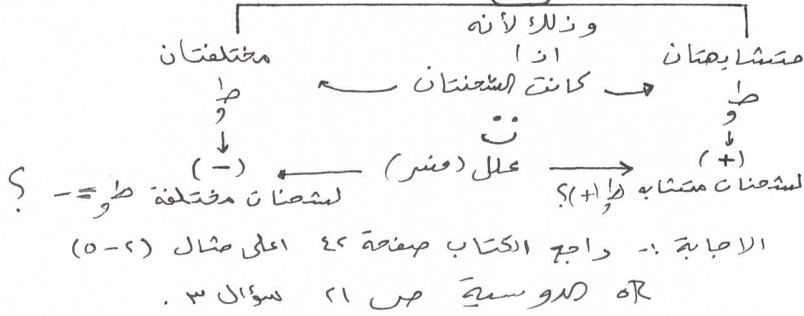 وذلك لأنه
متشابهتان اذا مختلفتان
كانت الشحنتان
ط و ط و
(+) علل (فسر) (-)
لشحنات متشابه ط و (+)؟ لشحنات مختلفة ط و = - ؟
الاجابة :- راجع الكتاب صفحة ٤٢ اعلى مثال (٢-٥)
OR الدوسية ص ٢١ سؤال ٣ .